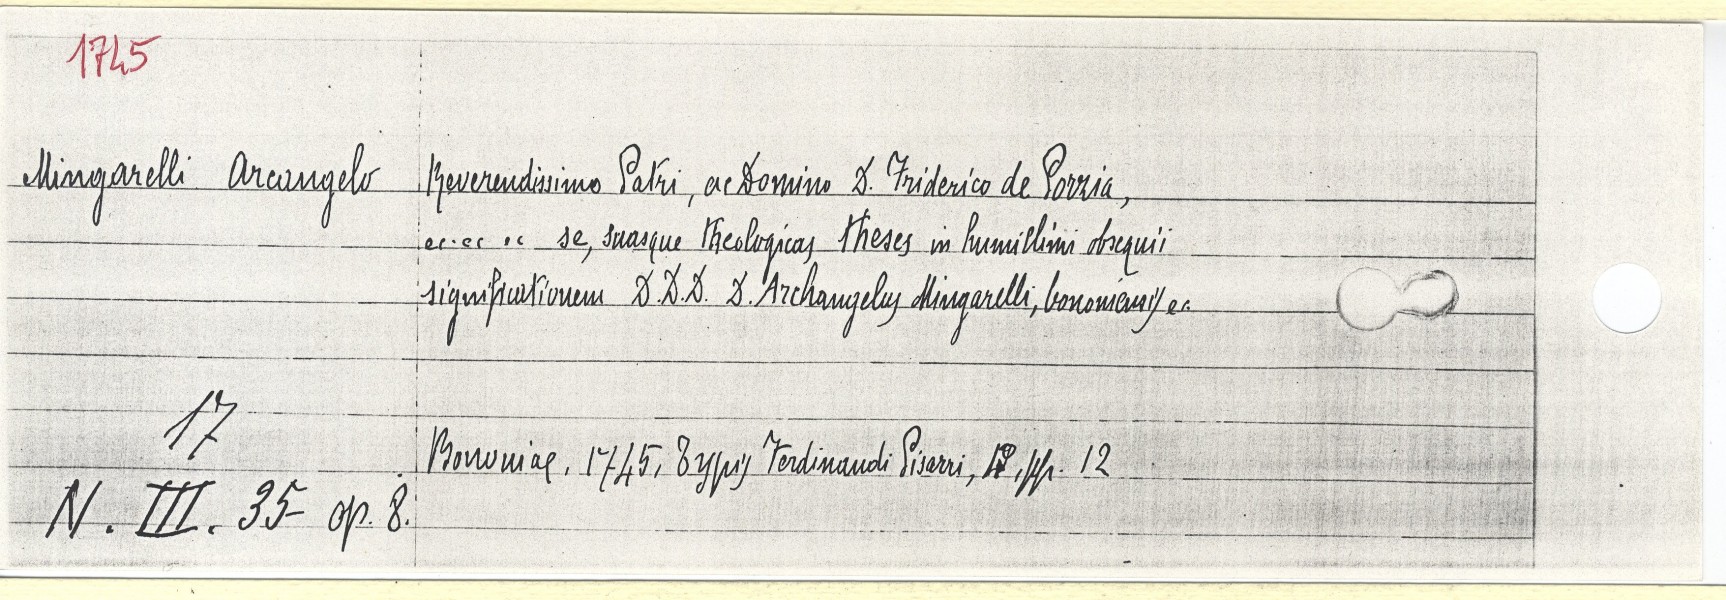 1745
Mingarelli Arcangelo
Reverendissimo Patri, ac Domino D. Friderico de Porzia,
ec. ec. ec. se, suasque theologicas theses in humillimi obsequii
significationem D.D.D. D. Archangelus Mingarelli, bononiensis ec.
17
Bononiae, 1745, Typis Ferdinandi Pisarri, pp. 12
N. III. 35 op. 8.